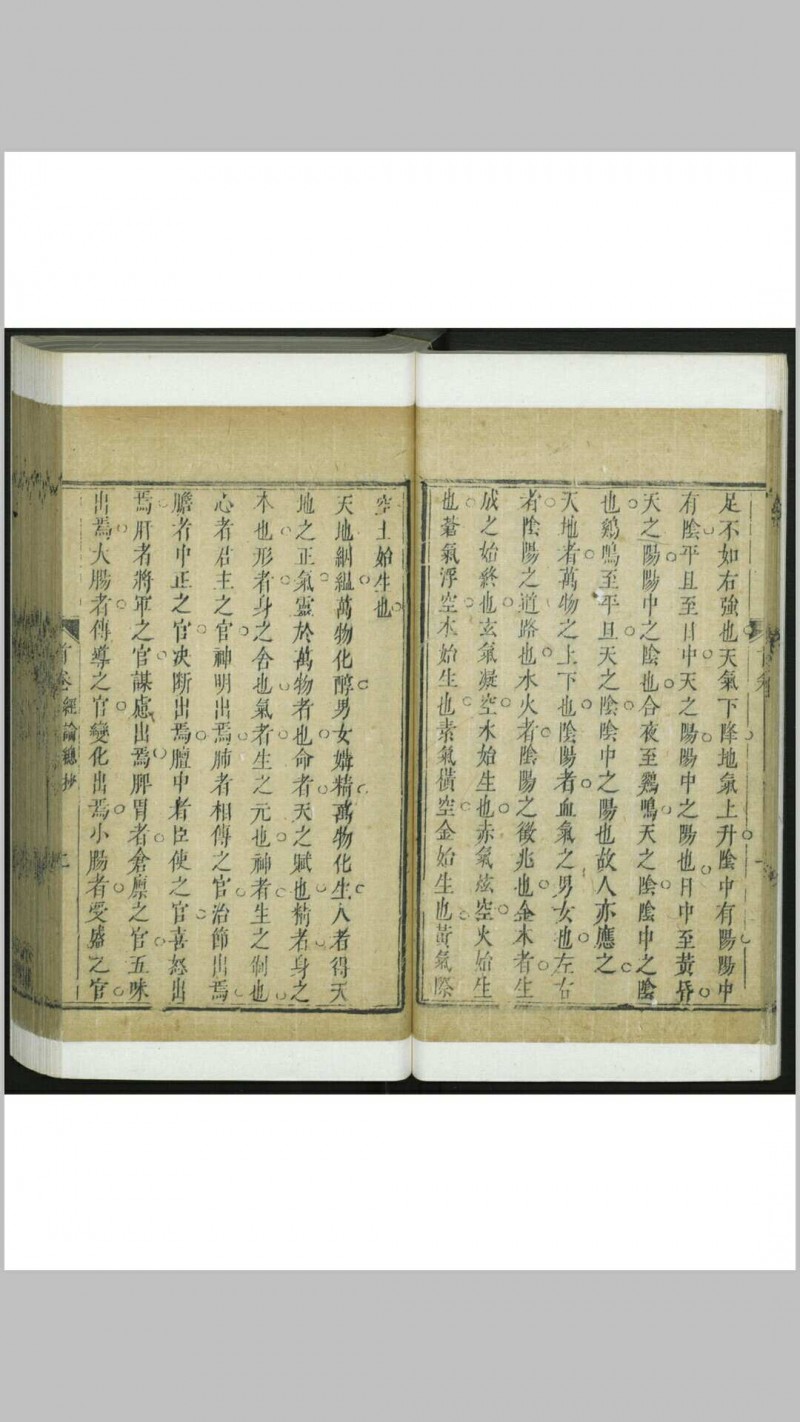 足不如右強也天氣下降地氣上升陰中有陽陽中
有陰平旦至日中天之陽陽中之陽也日中至黃昏
天之陽陽中之陰也合夜至鷄鳴天之陰陰中之陰
也鷄鳴至平旦天之陰陰中之陽也故人亦應之
天地者萬物之上下也陰陽者血氣之男女也左右
者陰陽之道路也水火者陰陽之徵兆也金木者生
成之始終也玄氣凝空水始生也赤氣炫空火始生
也蒼氣浮空木始生也素氣橫空金始生也黃氣際
空土始生也
天地絪縕萬物化醇男女媾精萬物化生人者得天
地之正氣靈於萬物者也命者天之賦也精者身之
本也形者身之舎也氣者生之元也神者生之制也
心者君主之官神明出焉肺者相傳之官治節出焉
膽者中正之官决断出焉膻中者臣使之官喜怒出
焉肝者將軍之官謀慮出焉脾胃者倉廪之官五味
出焉大腸者傳導之官變化出焉小腸者受盛之官
首卷 經論總抄 二